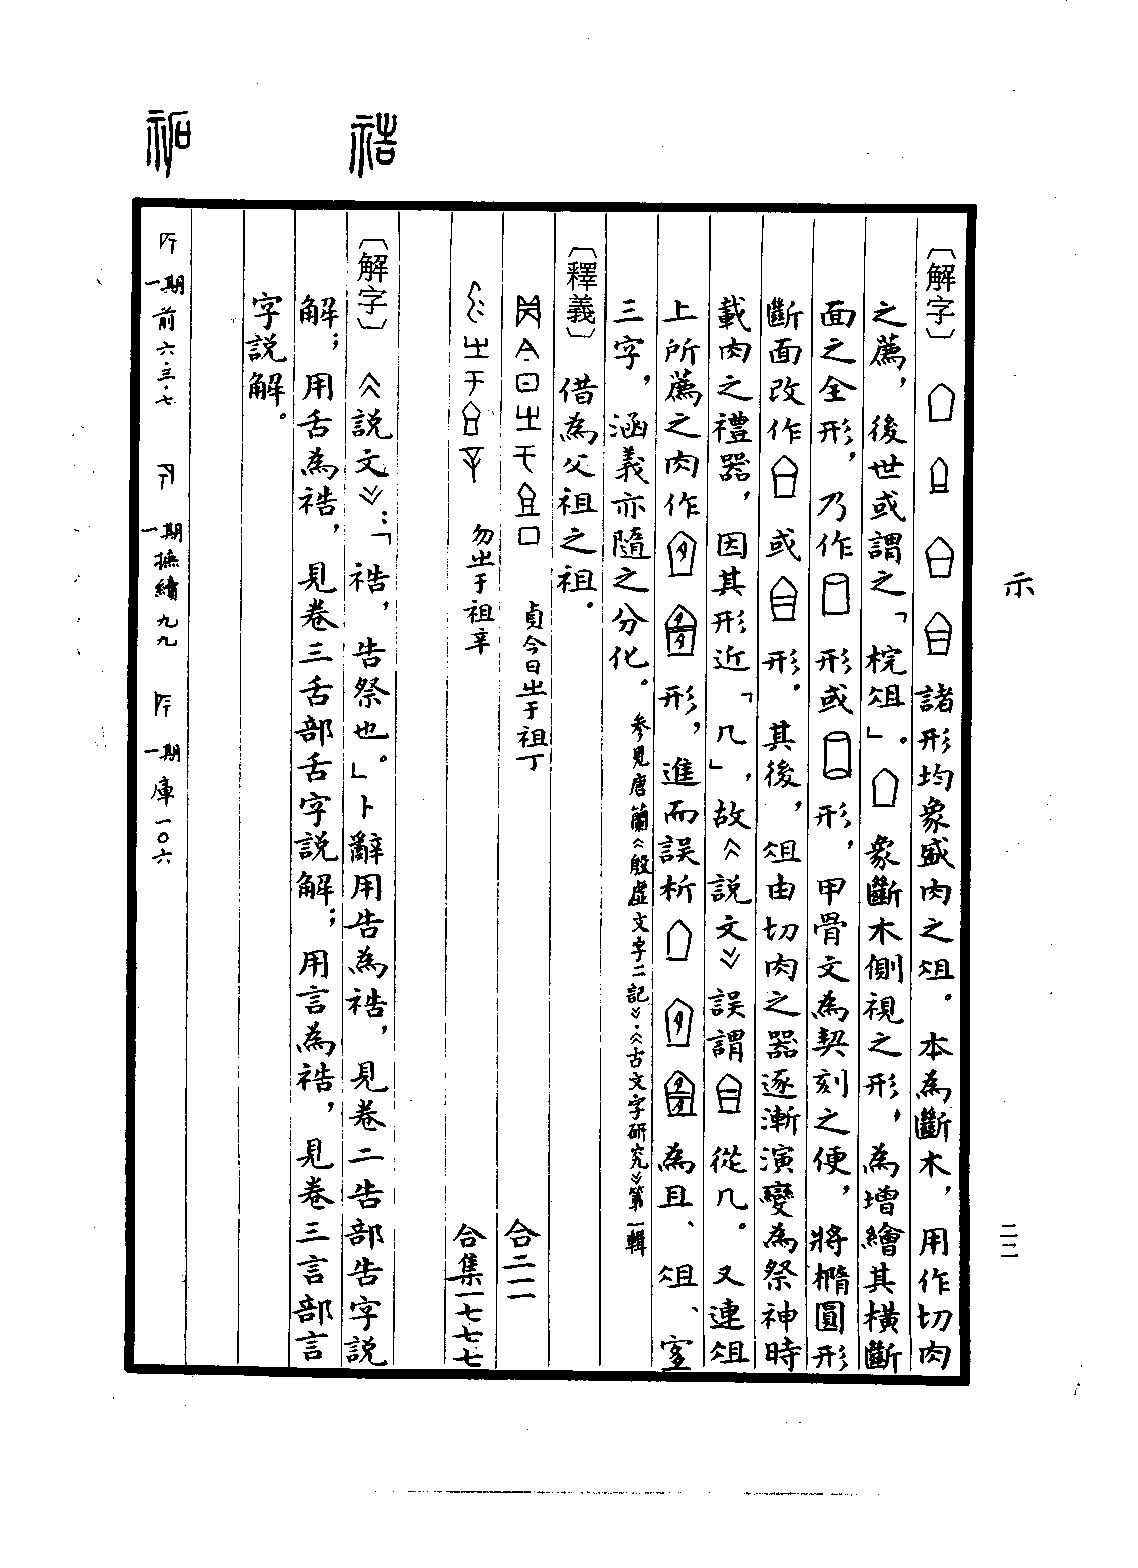 示
二二
〔解字〕 諸形均象盛肉之俎。本為斷木,用作切肉
之薦,後世或謂之「梡俎」。 象斷木側視之形,為增繪其橫斷
面之全形,乃作 形或 形,甲骨文為契刻之便,將橢圓形
斷面改作 或 形。其後,俎由切肉之器逐漸演變為祭神時
載肉之禮器,因其形近「几」,故《說文》誤謂 從几。又連俎
上所薦之肉作 形,進而誤析 為且、俎、宜
三字,涵義亦隨之分化。參見唐蘭《殷虛文字二記》·《古文字研究》第一輯
〔釋義〕 借為父祖之祖。
貞今日㞢于祖丁 合二一一
勿㞢于祖辛 合集一七七七
祰
〔解字〕 《說文》:「祰,告祭也。」卜辭用告為祰,見卷二告部告字說
解;用舌為祰,見卷三舌部舌字說解;用言為祰,見卷三言部言
字說解。
祏
一期 前六·三·七 一期 摭續九九 一期 庫一〇六